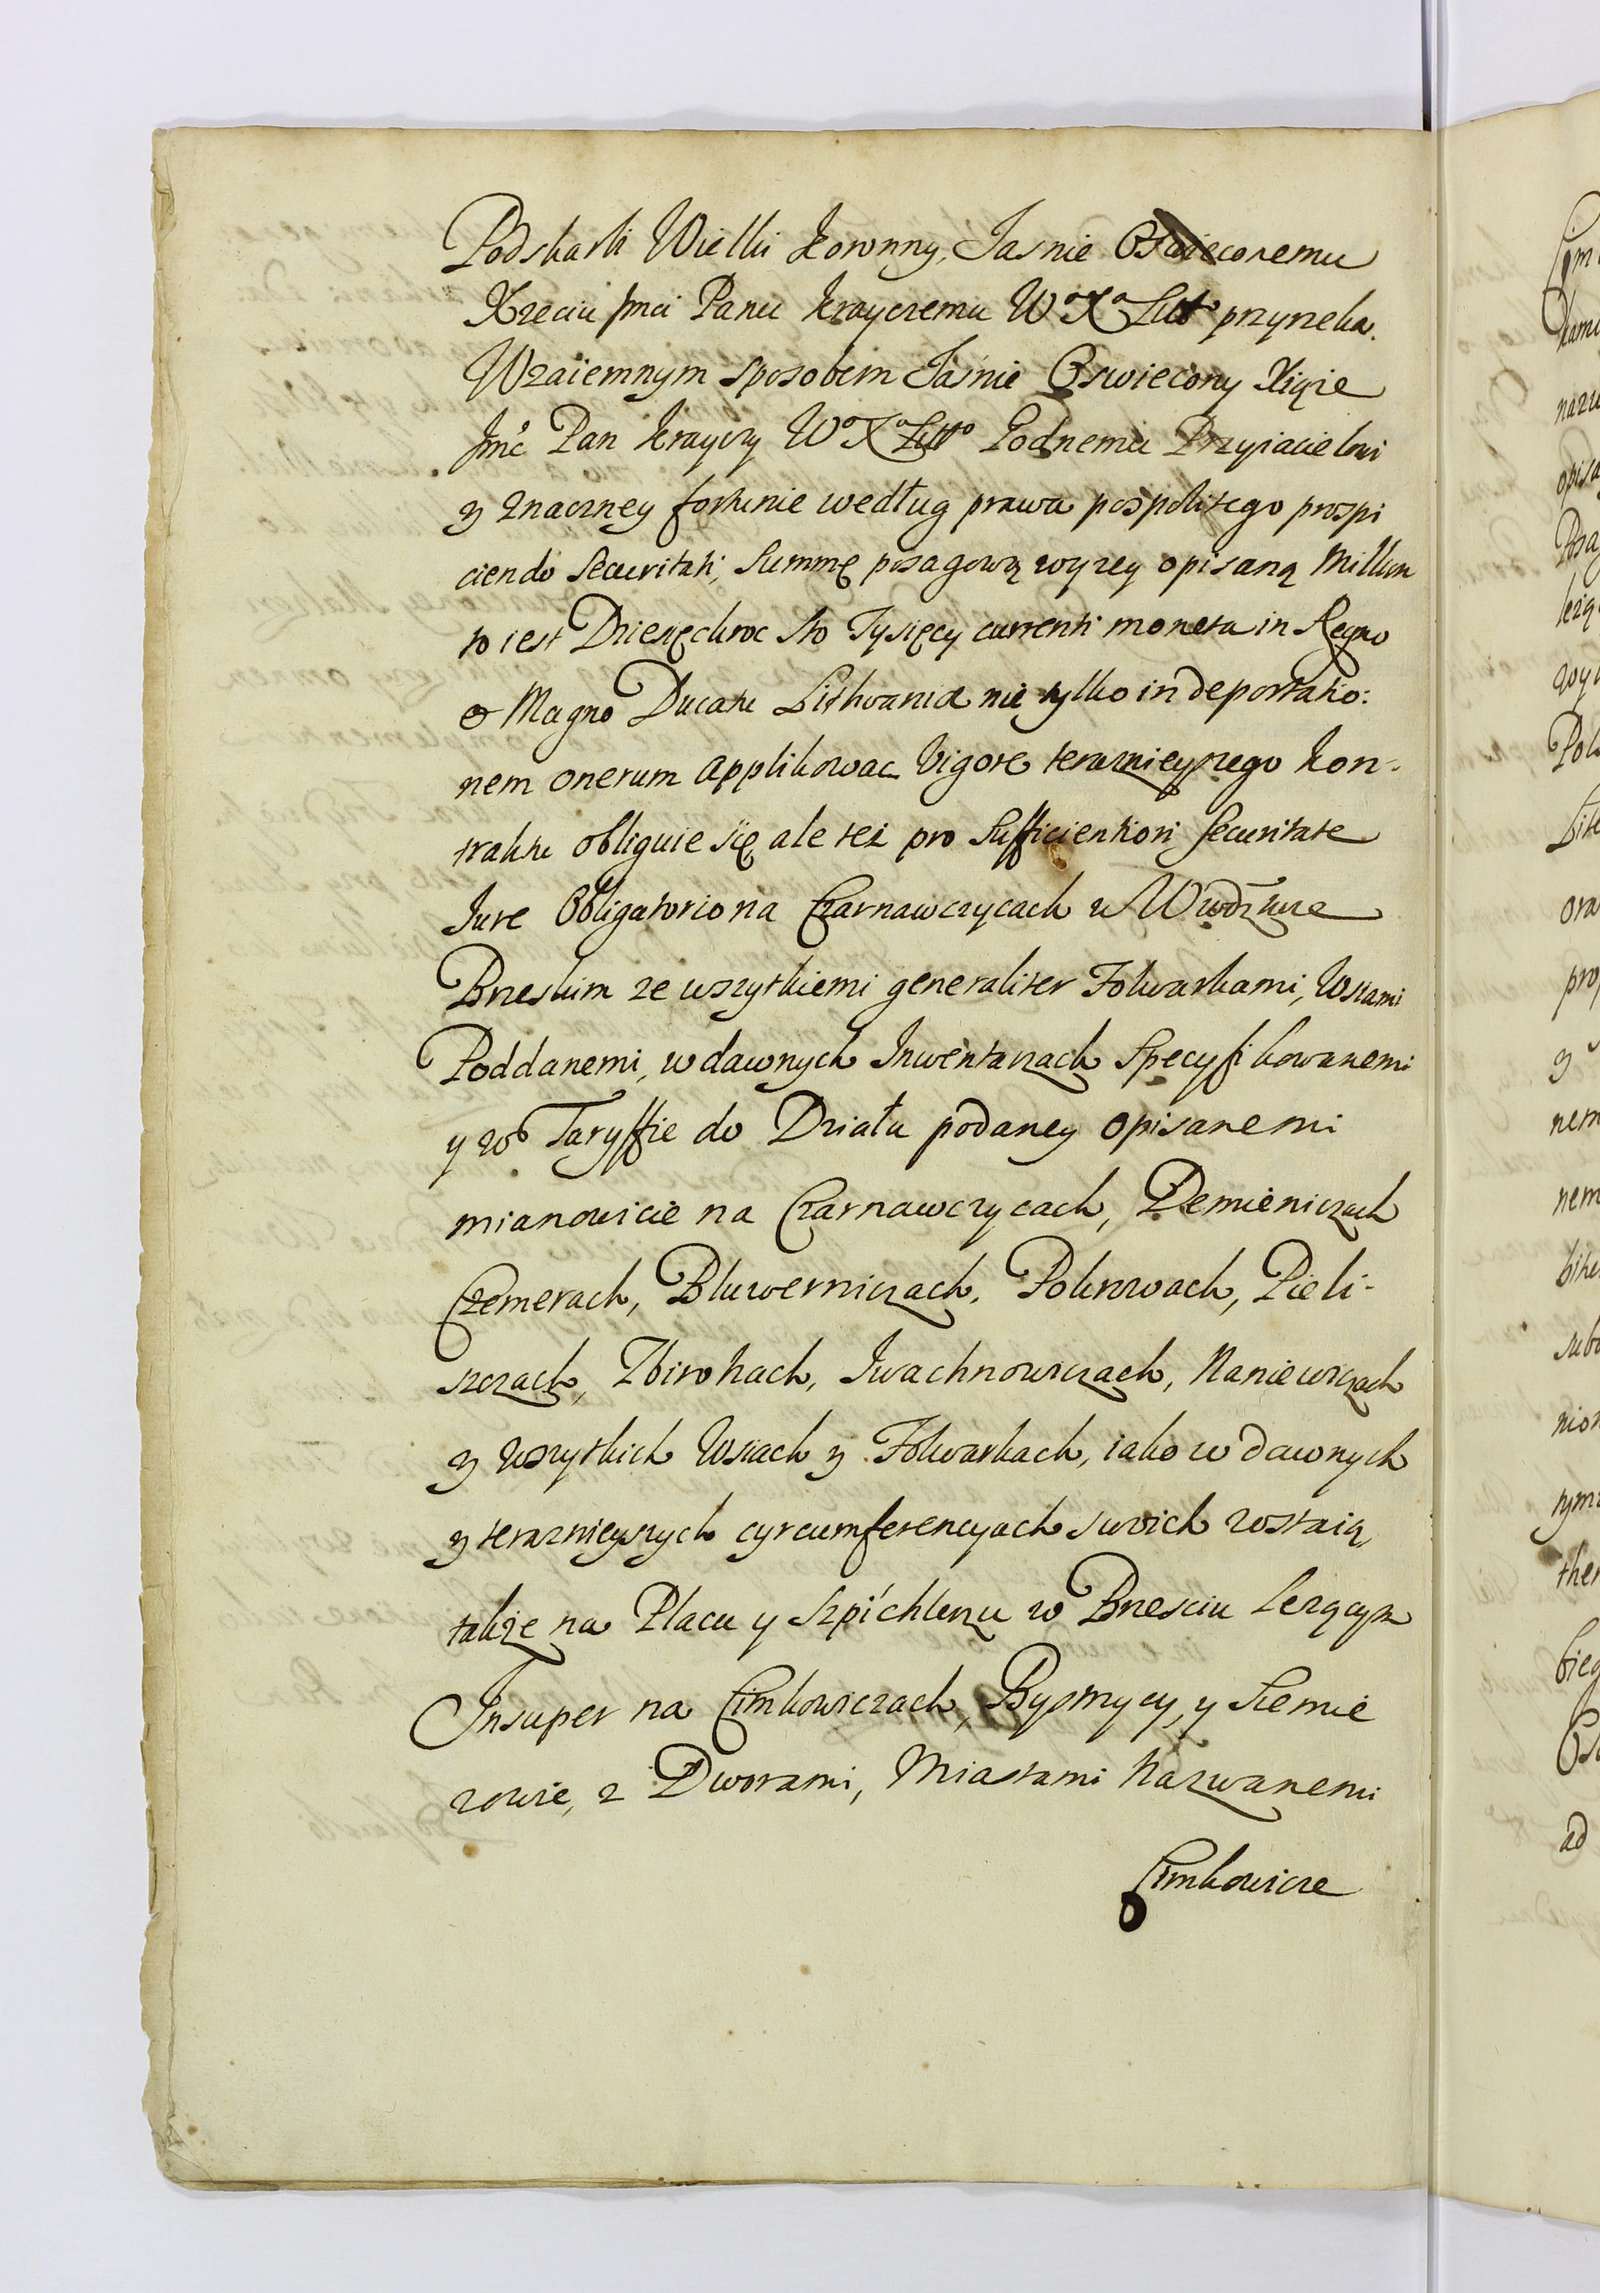 Podskarbi Wielki Koronny, Jasnie Oswieconemu
Xzeciu Jmci Panu Krayczemu Wo Xo Litto przyrzeka.
Wzaiemnym sposobem Jaśnie Oswiecony Xiąże
Jmć Pan Krayczy Wo Xo Litto Godnemu Przyiacielowi
y znaczney fortunie według prawa pospolitego prospi
ciendo Securitati, Summę posagową wyzey opisaną Million
to iest Dziesięckroc sto Tysięcy currenti moneta in Regno
et Magno Ducatu Lithvaniæ nie tylko in deportatio:
nem onerum applikowac Vigore teraznieyszego Kon-
traktu obliguie się, ale też pro Sufficientiori Securitate
Jure Obligatorio na Czarnawczycach w Wwdztwie
Brzeskim ze wszytkiemi generaliter Folwarkami, Wsiami
Poddanemi, w dawnych Inwentarzach Specyfikowanemi
y w Taryffie do Działu podaney opisanemi
mianowicie na Czarnawczycach, Demieniczach
Czemerach, Bluwerniczach, Pokrzwach, Pieli-
szczach, Zbirohach, Iwachnowiczach, Naniewiczach
y wszytkich Wsiach y Folwarkach, iako w dawnych
y teraznieyszych cyrcumferencyach swoich zostaią,
także na Placu y Szpichlerzu w Brzesciu Lezącym
Insuper na Cimkowiczach, Byszycy, y Siemie
zowie, z Dworami, Miastami Nazwanemi
Cimkowicze